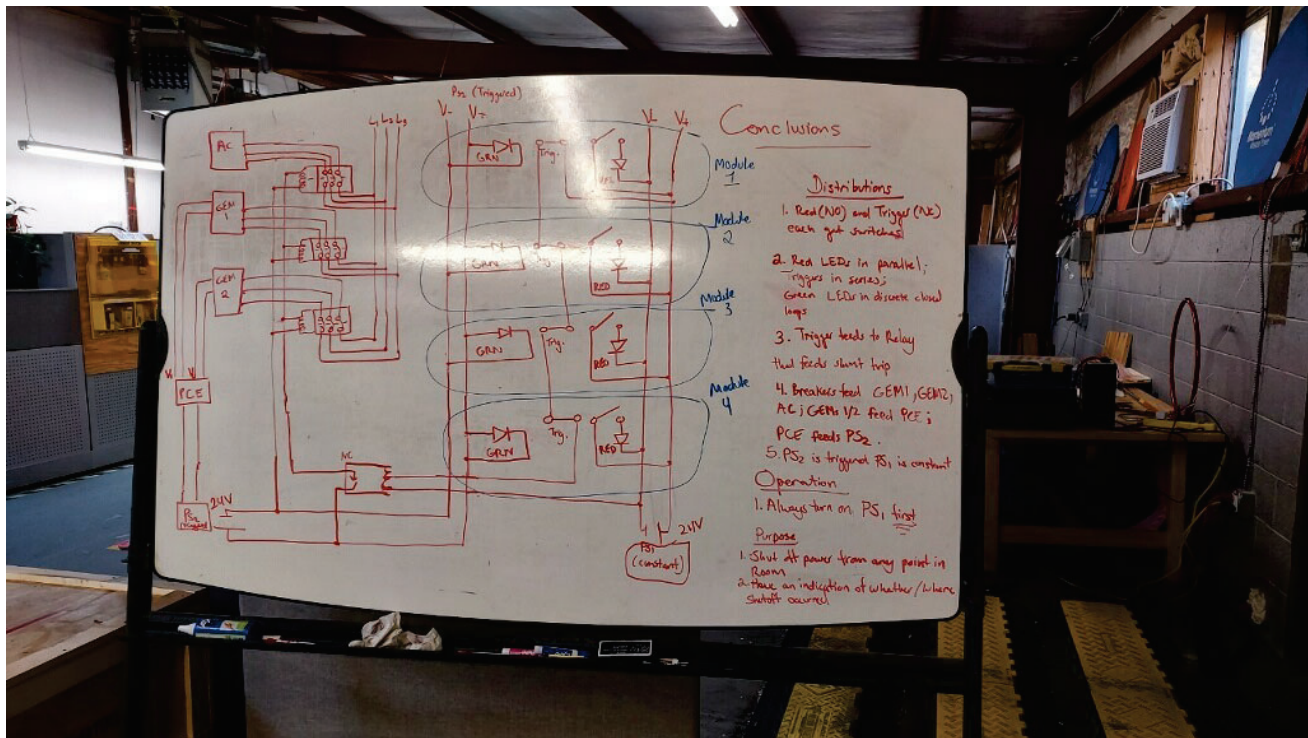 PS2 (Triggered)
V- V+
V- V+
L1 L2 L3
AC
GEM
1
GEM
2
V+ V-
PCE
PS2
24V
NC
GRN
Trig.
Module
1
GRN
RED
Module
2
GRN
Trig.
RED
Module
3
GRN
Trig.
RED
Module
4
24V
PS1
(constant)
Conclusions
Distributions
1. Red (NO) and Trigger (NC)
each get switches
2. Red LEDs in parallel;
Triggers in series;
Green LEDs in discrete closed
loops
3. Trigger feeds to Relay
that feeds shunt trip
4. Breakers feed GEM1, GEM2,
AC; GEMs 1/2 feed PCE;
PCE feeds PS2.
5. PS2 is triggered PS1 is constant
Operation
1. Always turn on PS1 first
Purpose
1. Shut off power from any point in
Room
2. Have an indication of whether/where
shutoff ocurred
Momentum